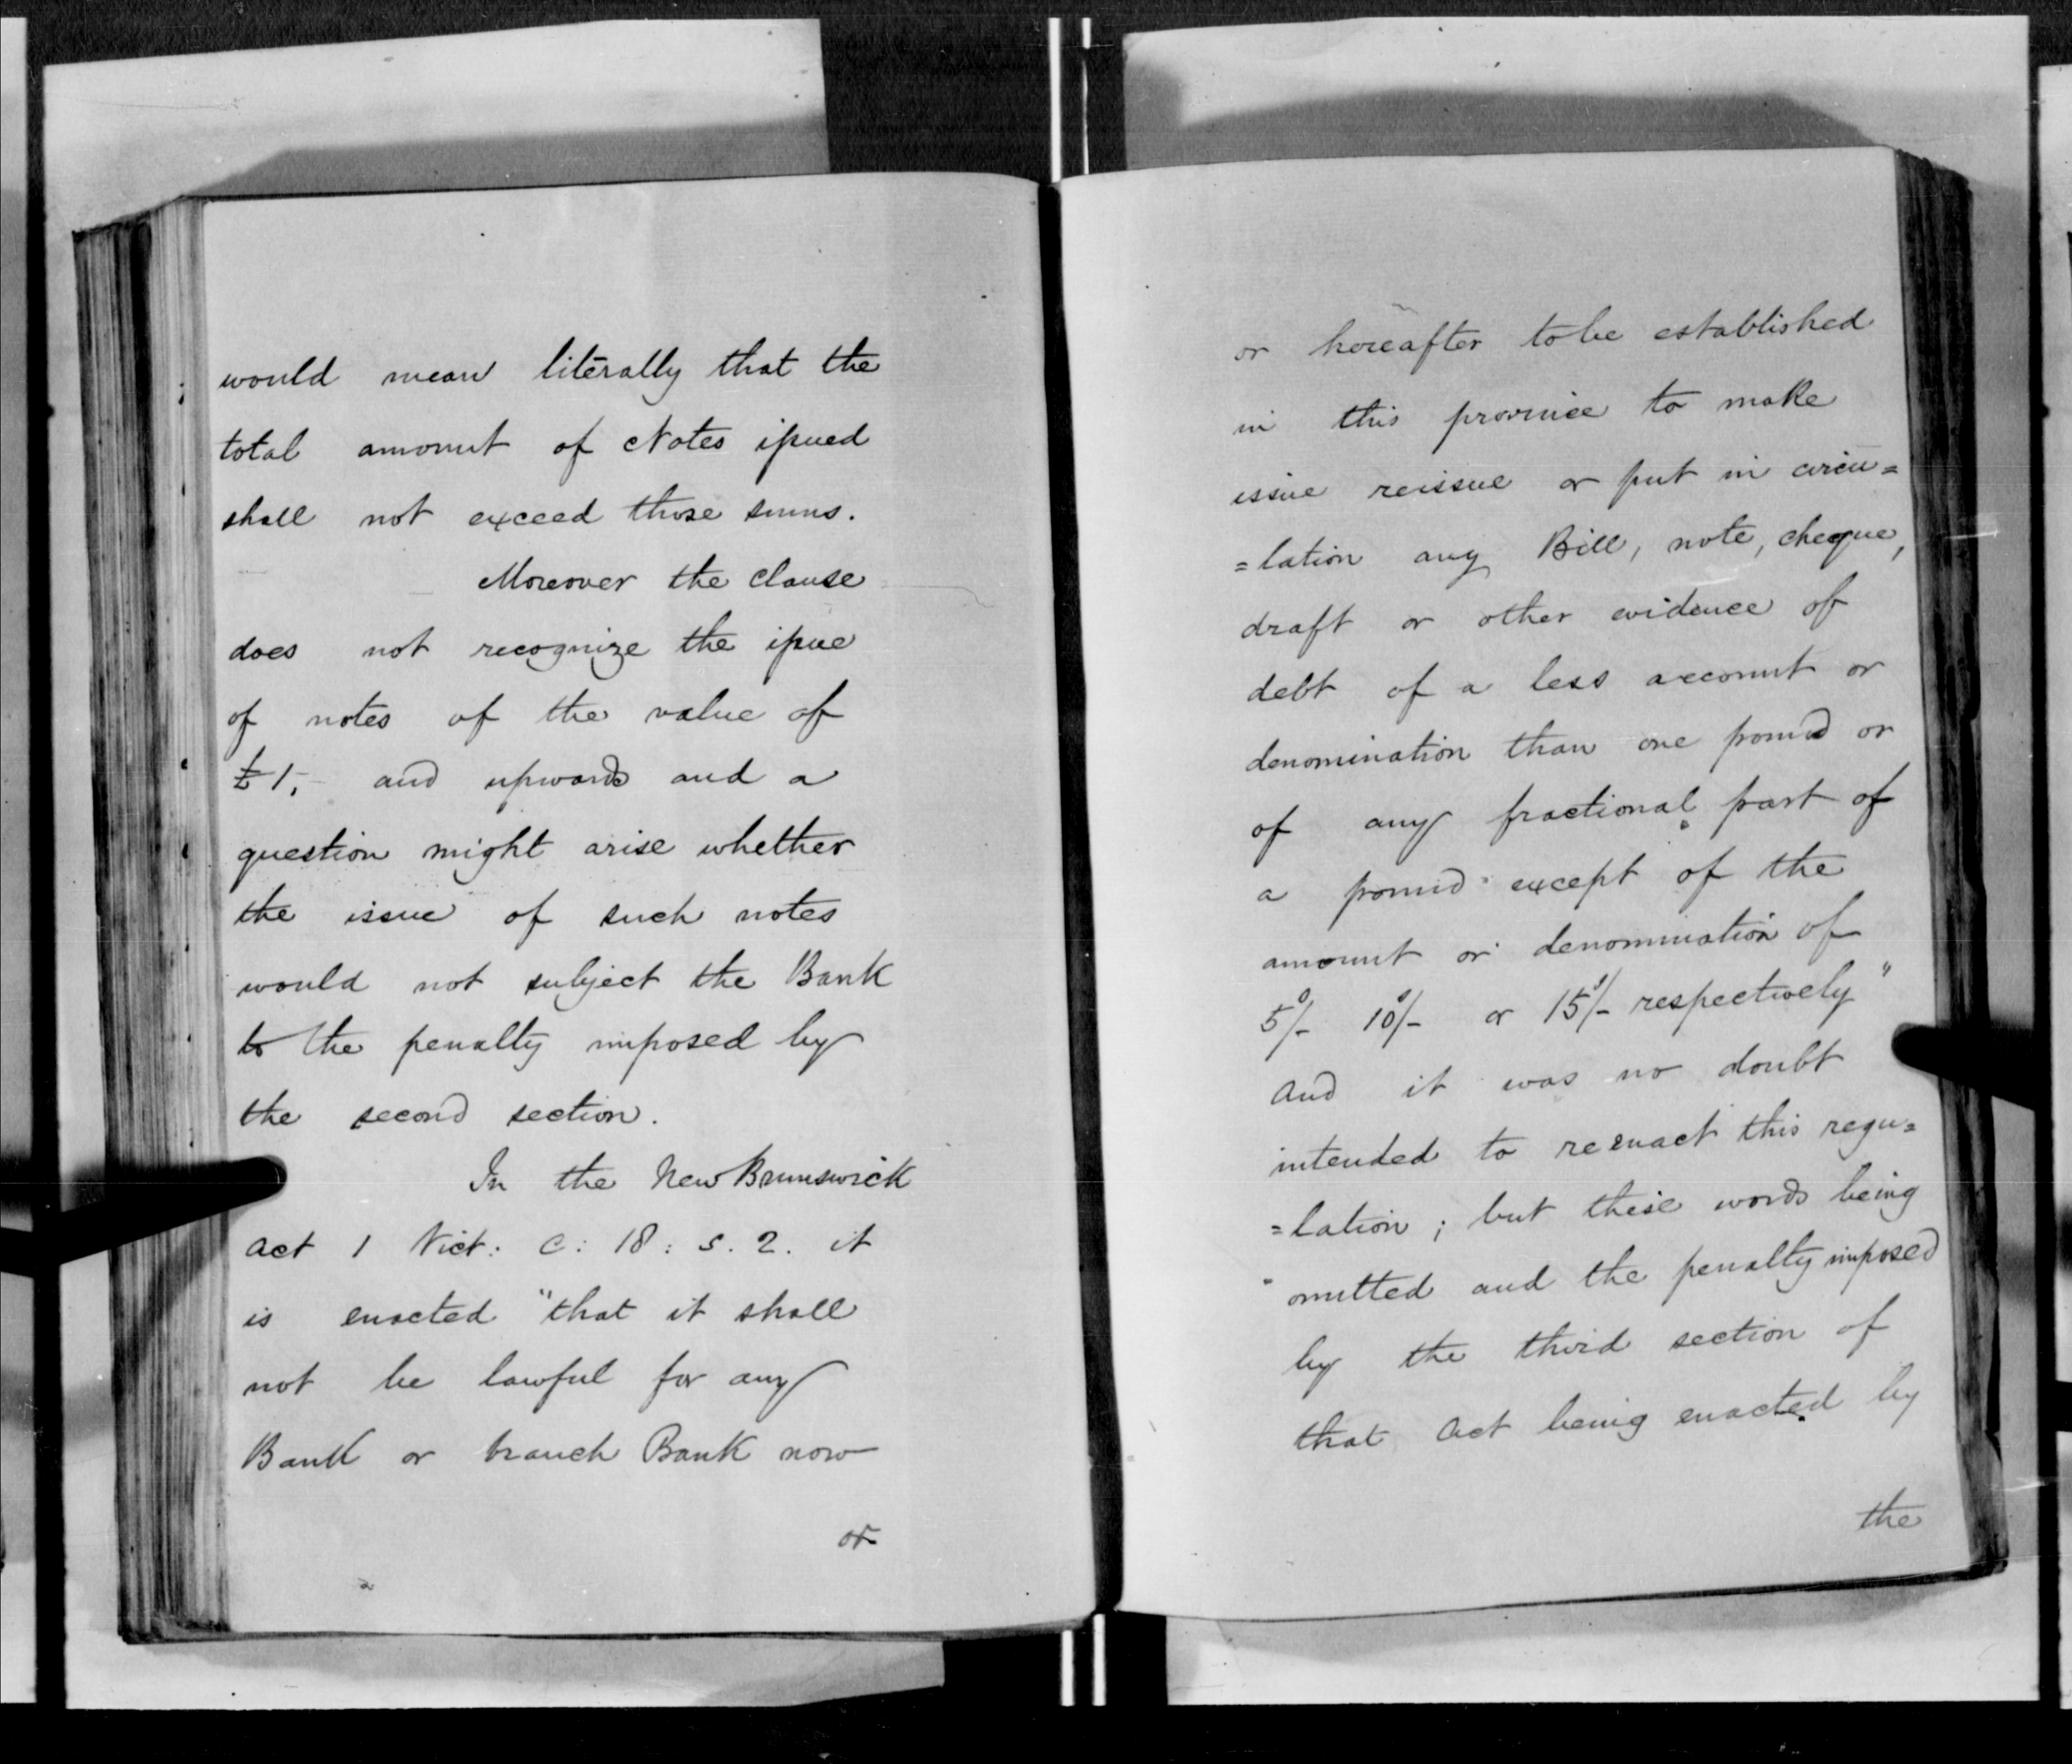 would mean literally that the
total amount of Notes issued
shall not exceed those sums.
Moreover the clause
does not recognize the issue
of notes of the value of
£1,- and upwards and a
question might arise whether
the issue of such notes
would not subject the Bank
to the penalty imposed by
the second section.
In the New Brunswick
Act 1 Vict: C: 18: S. 2. it
is enacted "that it shall
not be lawful for any
Bank or branch Bank now
or
or hereafter to be established
in this province to make
issue reissue or put in circu=
=lation any Bill, note, cheque,
draft or other evidence of
debt of a less account or
denomination than one pound or
of any fractional part of
a pound except of the
amount or denomination of
5/- 10/- or 15/- respectively"
And it was no doubt
intended to reenact this regu=
=lation; but these words being
omitted and the penalty imposed
by the third section of
that Act being enacted by
the